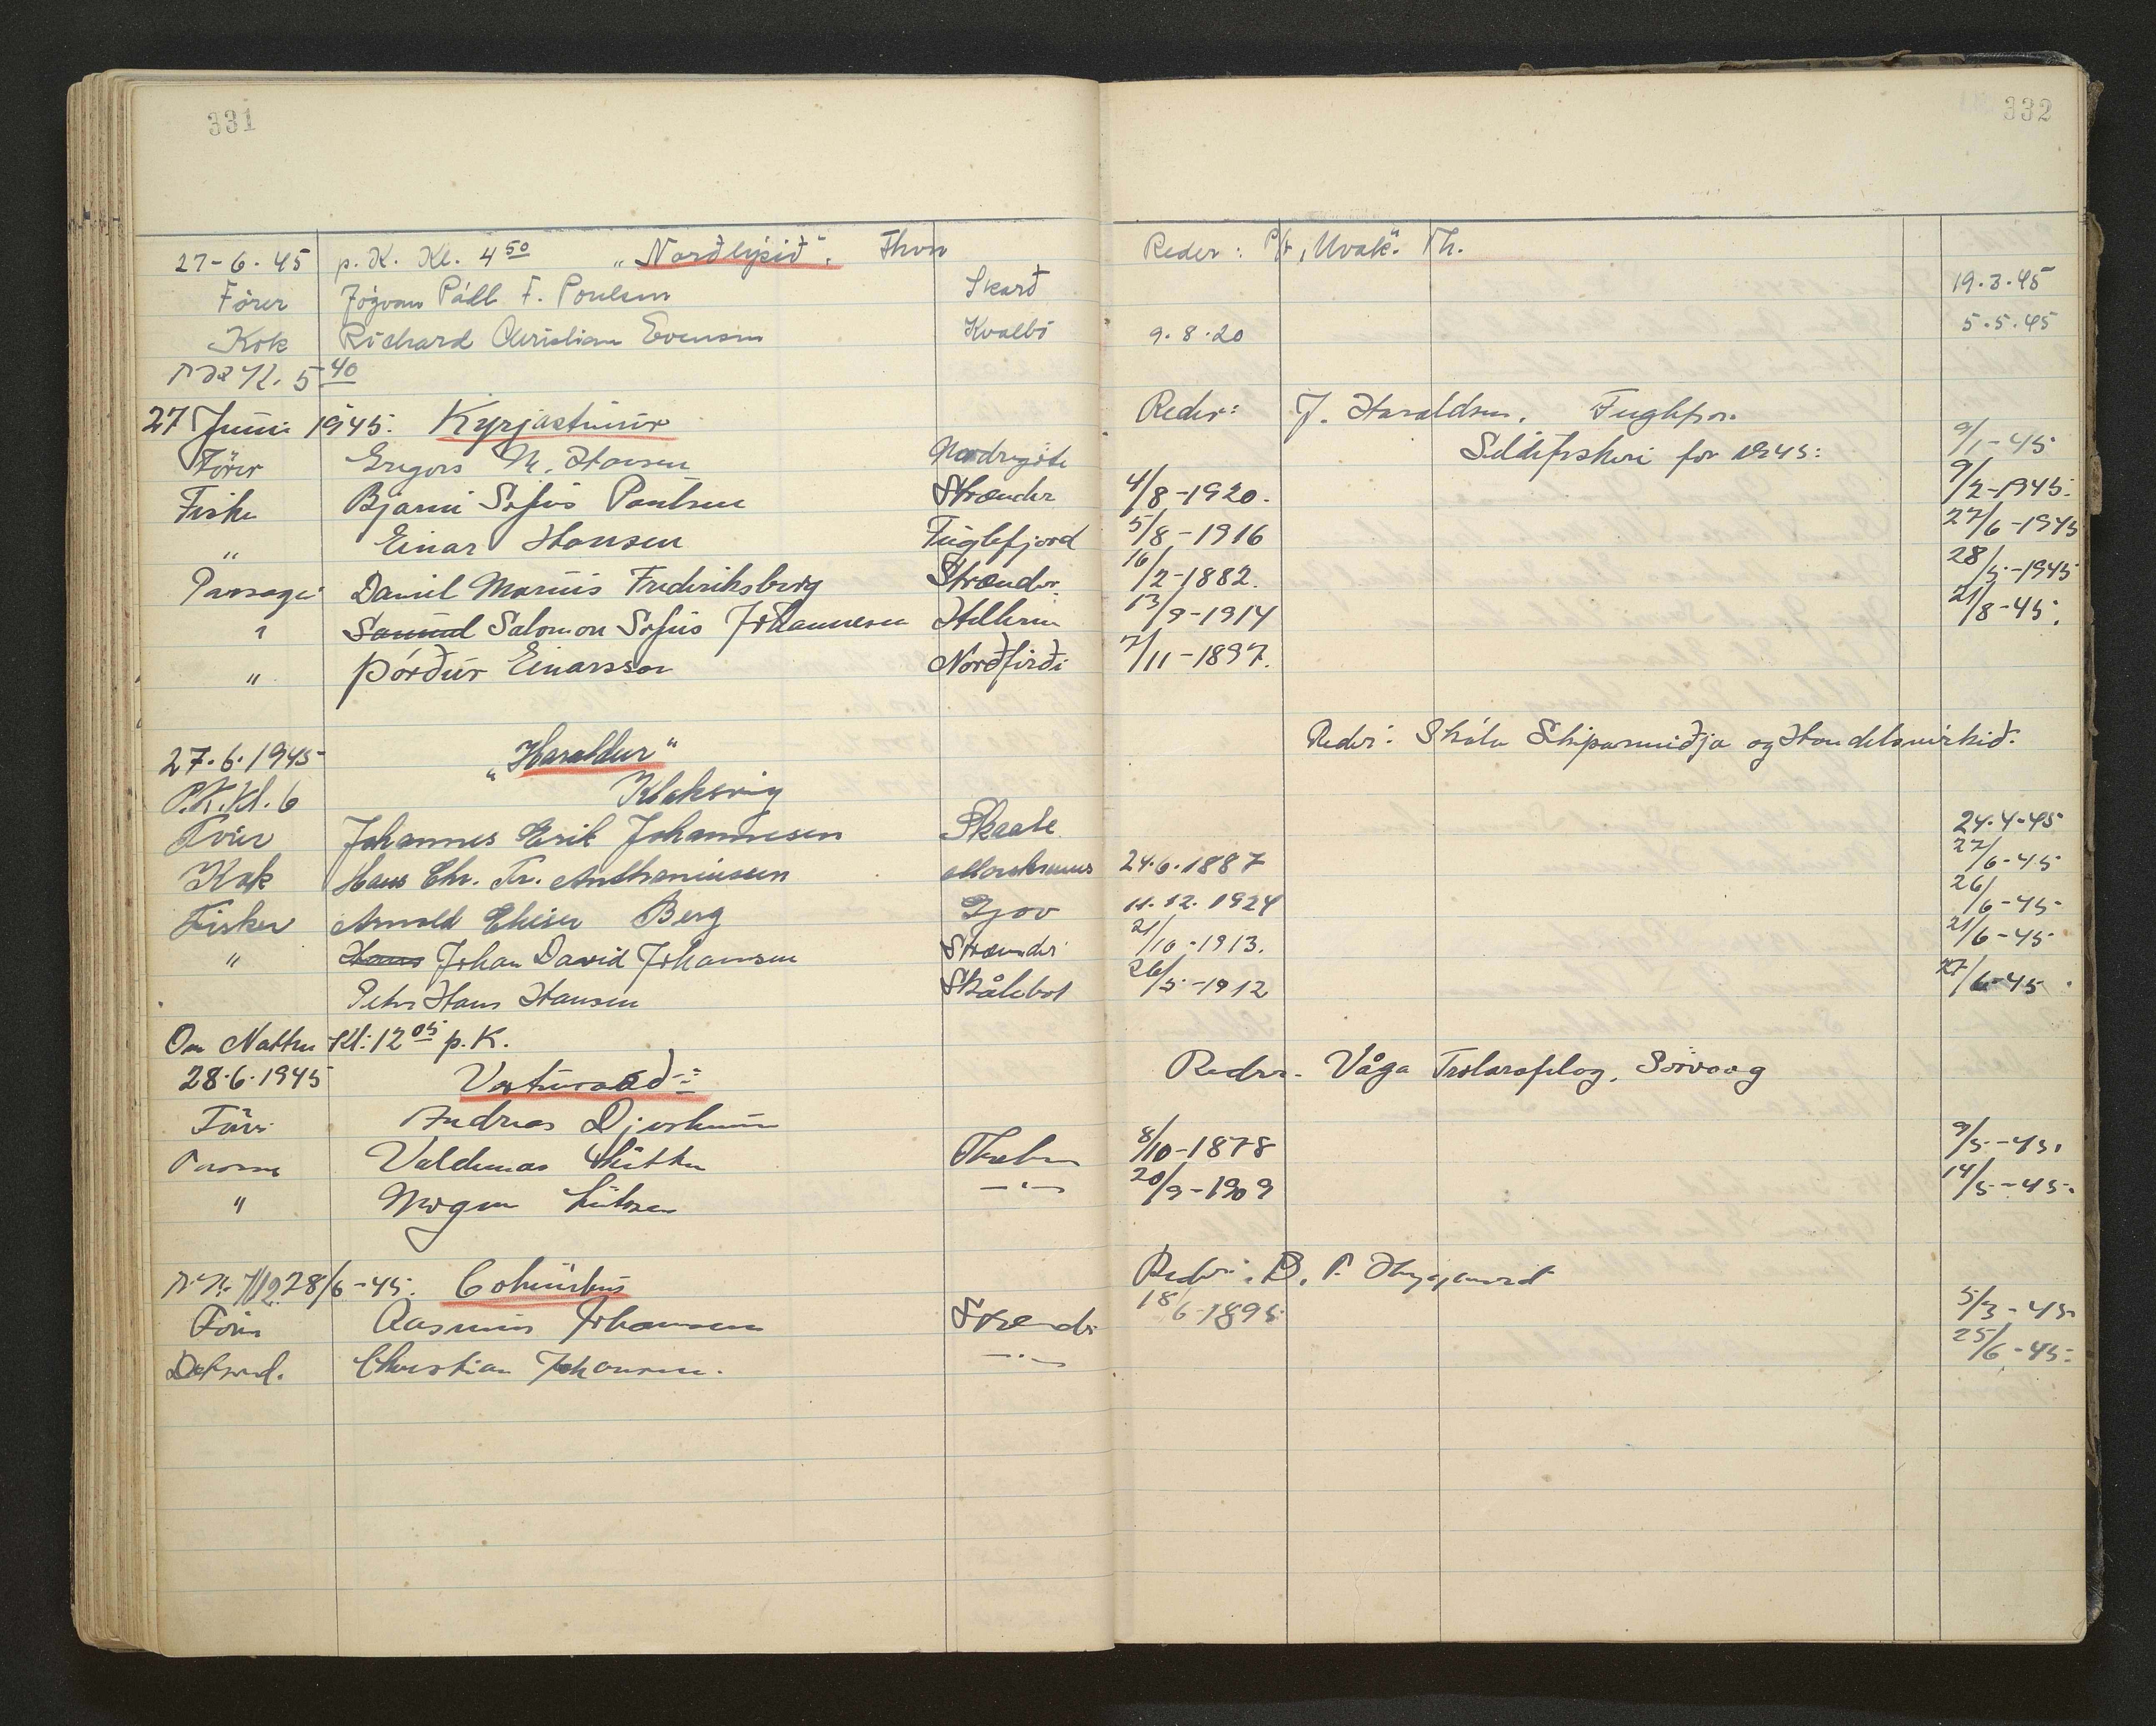 331
332
27-6-45 p. K. Kl. 4 50 „Norðlýsið". Thvn Reder: P/f „Kvak". Th.
Förer Jógvan Páll F. Poulsen Skarð 19.3.45
Kok Richard Christian Evensen Kvalbö 9.8.20 5.5.45
Kl. 5 40
27 Juni 1945: Kyrjasteinur Reder: J. Haraldsen, Fuglefjor.
Förer Gregors M. Hansen Nordregöte Sildefiskeri for 1945: 9/1-45
Fisker Bjarni Sofus Poulsen Strænder 4/8-1920. 9/2-1945.
" Einar Hansen Fuglefjord 5/8-1916 27/6-1945
Passager Daniel Marius Frederiksberg Strænder 16/2-1882. 28/5-1945
" Samuel Salomon Sofus Johannesen Hellerne 13/9-1914 21/8-45.
" Þórður Einarsson Norðfirði 7/11-1897.
27.6.1945 „Haraldur" Reder: Skála Skipasmiðja og Handelsvirkið.
P.K. Kl. 6 Klaksvig
Förer Johannes Erik Johannesen Skaale 24.4-45
Kok Hans Chr. Fr. Anthoniussen 24.6.1887 27/6-45
Fisker Arnold Elieser Berg Gjov 11.12.1924 26/6-45
" Hans Johan David Johansen Strænder 21/10-1913. 21/6-45
Peter Hans Hansen Skålebot 26/5-1912 27/6-45
Om Natten Kl: 12 05 p. K.
28.6.1945 Vesturvard Reder. Våga Trolarafelag, Sörvaag
Förer Andreas Djurhuus
Valdemar Lützen Thshvn 8/10-1878 9/5-45.
" Mogens Lützen —"— 20/9-1909 14/5-45.
28/6-45. Columbus Reder: D. P. Højgaard
Förer Rasmus Johansen Strender 18/6-1895 5/3-45
Christian Johansen. —"— 25/6-45.